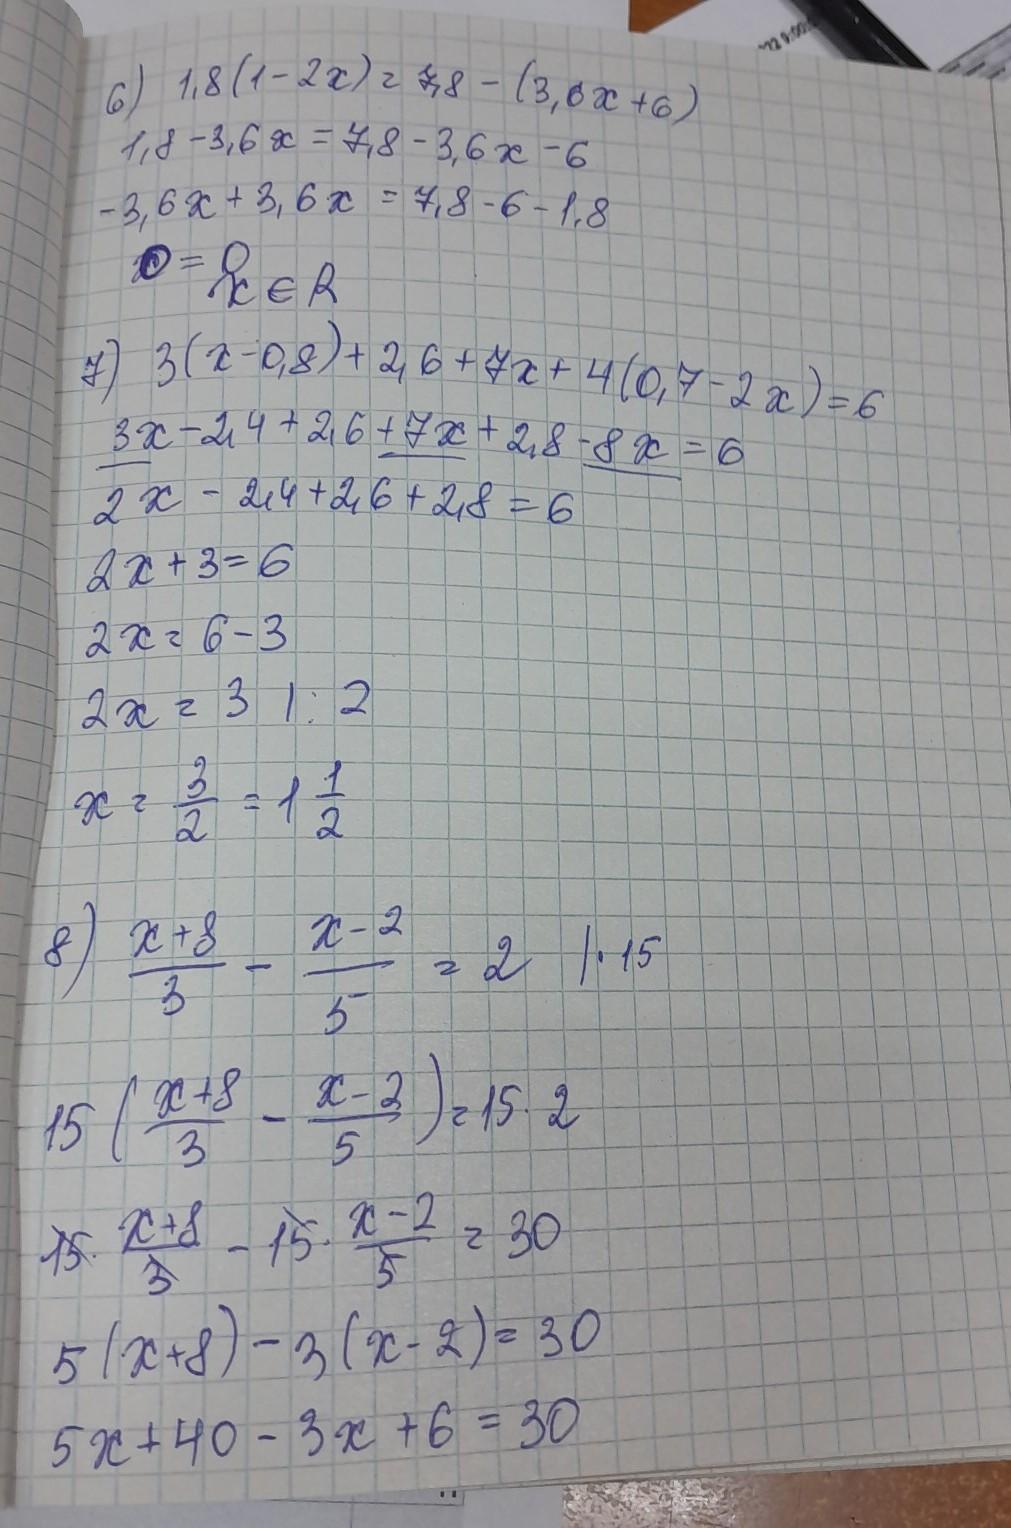 22 9:00:
6) 1,8(1-2x) = 7,8 - (3,6x+6)
1,8-3,6x = 7,8-3,6x-6
-3,6x+3,6x = 7,8-6-1,8
0 = 0
x ∈ R
7) 3(x-0,8)+2,6+7x+4(0,7-2x)=6
3x-2,4+2,6+7x+2,8-8x=6
2x-2,4+2,6+2,8=6
2x+3=6
2x=6-3
2x=3 |:2
x = 3/2 = 1 1/2
8) (x+8)/3 - (x-2)/5 = 2 |·15
15((x+8)/3 - (x-2)/5) = 15·2
15·(x+8)/3 - 15·(x-2)/5 = 30
5(x+8)-3(x-2)=30
5x+40-3x+6=30